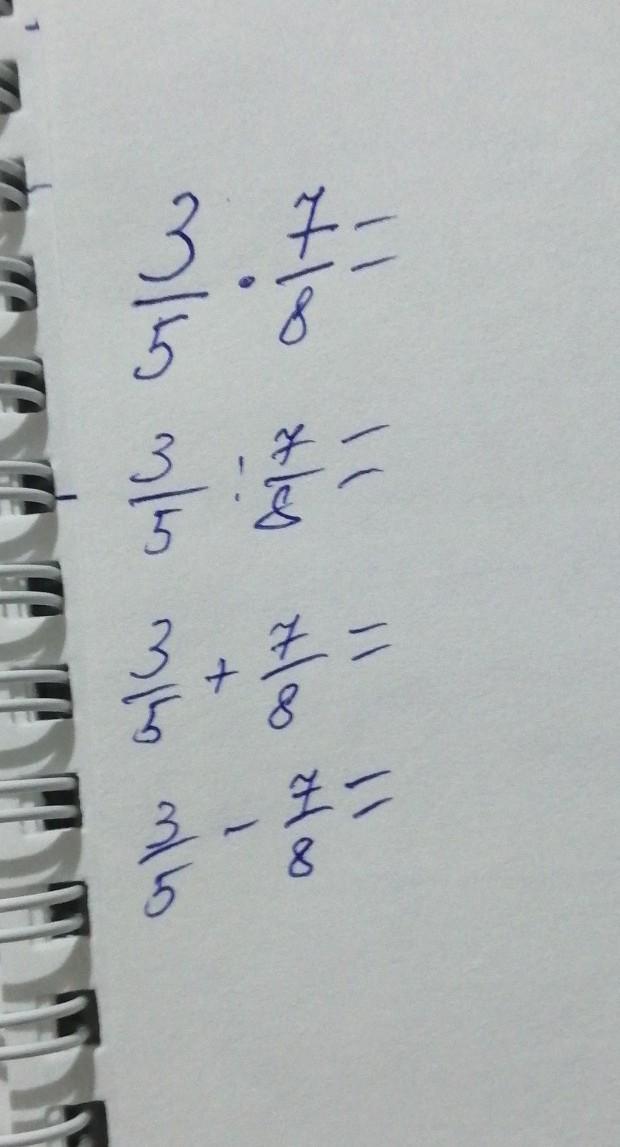 3/5 · 7/8 =
3/5 : 7/8 =
3/5 + 7/8 =
3/5 - 7/8 =